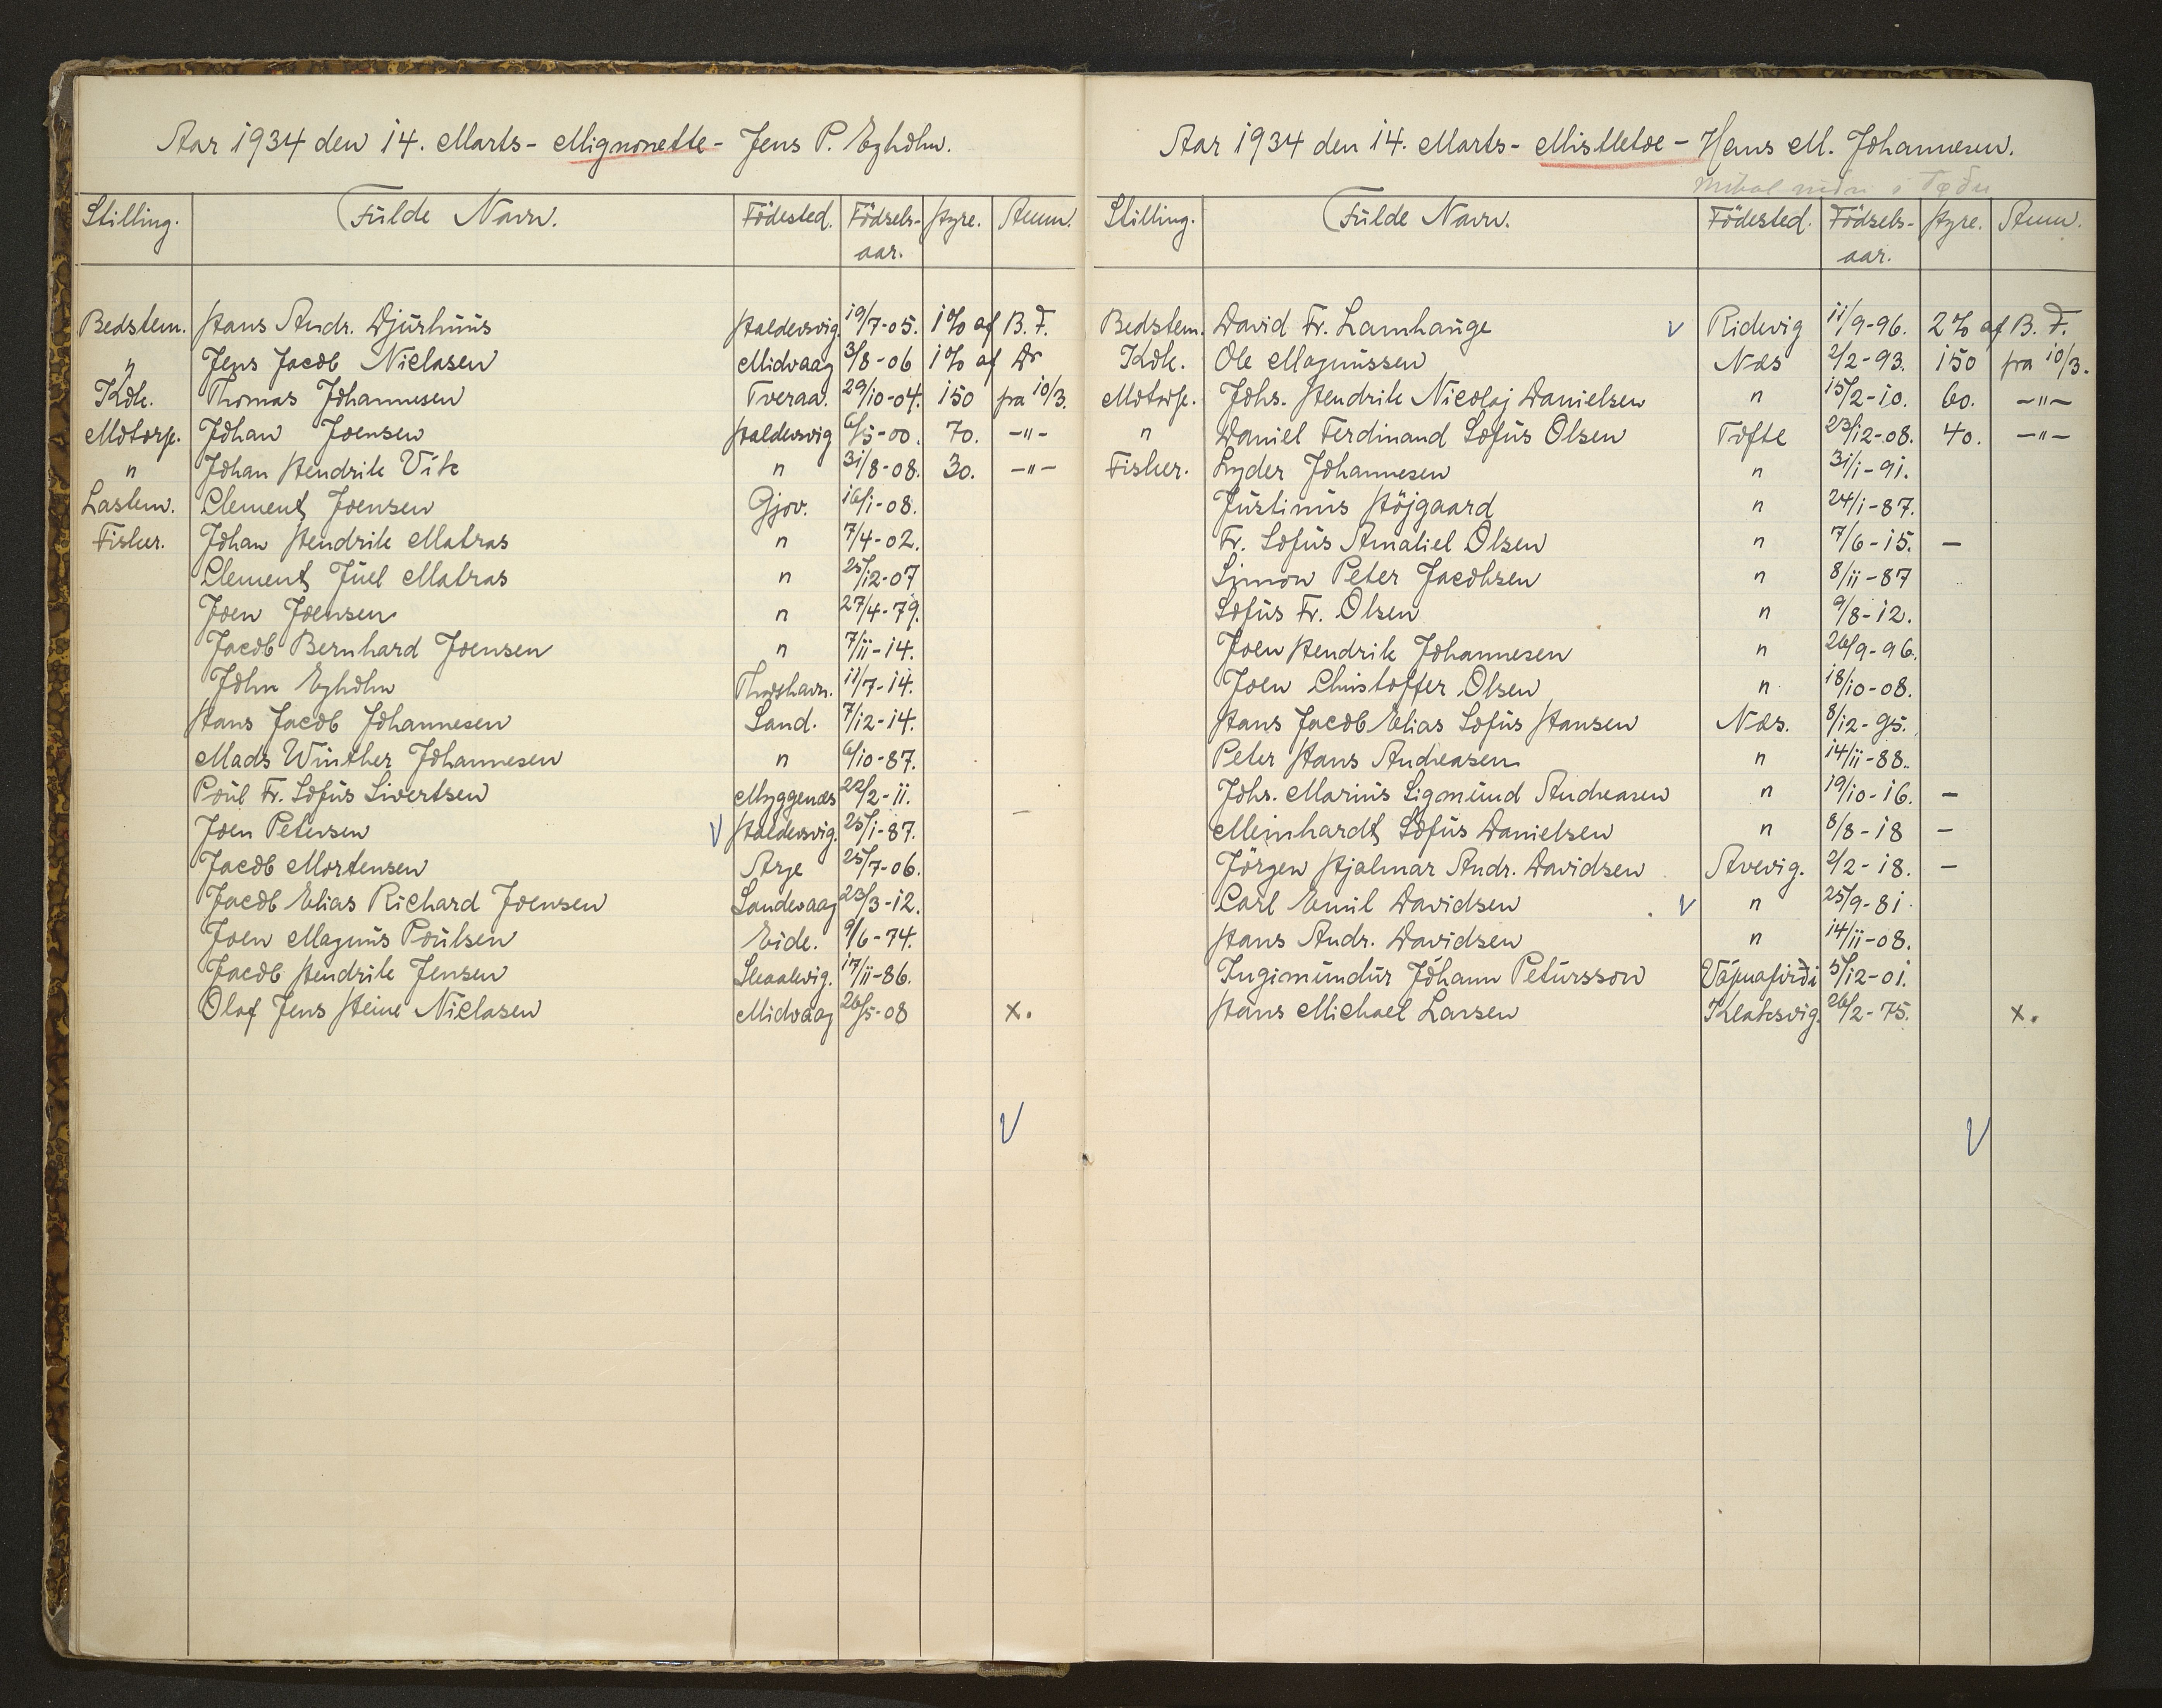 Aar 1934 den 14. Marts - Mignonette - Jens P. Egholm.
Stilling. Fulde Navn. Födested. Födsels-aar. Hyre. Anm.
Bedstem. Hans Andr. Djurhuus Haldersvig 19/7-05. 1% af B. F.
" Jens Jacob Niclasen Midvaag 3/8-06 1% af Do
Kok. Thomas Johannesen Tveraa. 29/10-04. 150 fra 10/3.
Motorp. Johan Joensen Haldersvig 6/5-00. 70. -"-
" Johan Hendrik Vik " 31/8-08. 30. -"-
Lastem. Clement Joensen Gjov. 16/1-08.
Fisker. Johan Hendrik Matras " 7/4-02.
Clement Juel Matras " 25/12-07
Joen Joensen " 27/4-79.
Jacob Bernhard Joensen " 7/11-14.
John Egholm Thorshavn. 11/7-14.
Hans Jacob Johannesen Sand. 7/12-14.
Mads Winther Johannesen " 6/10-87.
Poul Fr. Sofus Sivertsen Myggenæs 22/2-11.
Joen Petersen V Haldersvig. 25/1-87. -
Jacob Mortensen Arge 25/7-06.
Jacob Elias Richard Joensen Sandevaag 23/3-12.
Joen Magnus Poulsen Eide. 9/6-74.
Jacob Hendrik Jensen Skaalevig. 17/11-86.
Olaf Jens Heine Niclasen Midvaag 26/5-08 x.
V
Aar 1934 den 14. Marts - Mistletoe - Hans M. Johannesen.
Stilling. Fulde Navn. Födested. Födsels-aar. Hyre. Anm.
Bedstem. David Fr. Lamhauge V Ridevig 11/9-96. 2% af B. F.
Kok. Ole Magnussen Næs 2/2-93. 150 fra 10/3.
Motorp. Johs. Hendrik Nicolaj Danielsen " 15/2-10. 60. -"-
" Daniel Ferdinand Sofus Olsen Tofte 23/12-08. 40. -"-
Fisker. Lyder Johannesen " 31/1-91.
Justinus Höjgaard " 24/1-87.
Fr. Sofus Amaliel Olsen " 7/6-15. -
Simon Peter Jacobsen " 8/11-87
Sofus Fr. Olsen " 9/8-12.
Joen Hendrik Johannesen " 26/9-96.
Joen Christoffer Olsen " 18/10-08.
Hans Jacob Elias Sofus Hansen Næs. 8/12-95.
Peter Hans Andreasen " 14/11-88.
Johs. Marius Sigmund Andreasen " 19/10-16. -
Meinhardt Sofus Danielsen " 8/8-18 -
Jörgen Hjalmar Andr. Davidsen Avevig. 2/2-18. -
Carl Emil Davidsen V " 25/9-81.
Hans Andr. Davidsen " 14/11-08.
Ingimundur Jóhann Petursson Vápnafirði 5/12-01.
Hans Michael Larsen Klaksvig. 26/2-75. x.
V